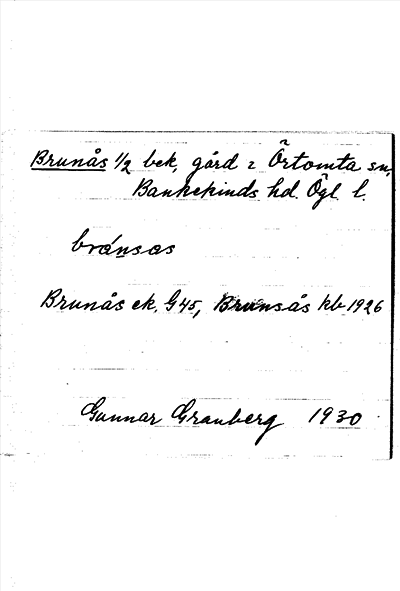 Brunås 1/2 bek, gård i Örtomta sn,
Bankekinds hd. Ögl. l.
brånsas
Brunås ek. G45, Brunsås kb 1926
Gunnar Granberg 1930